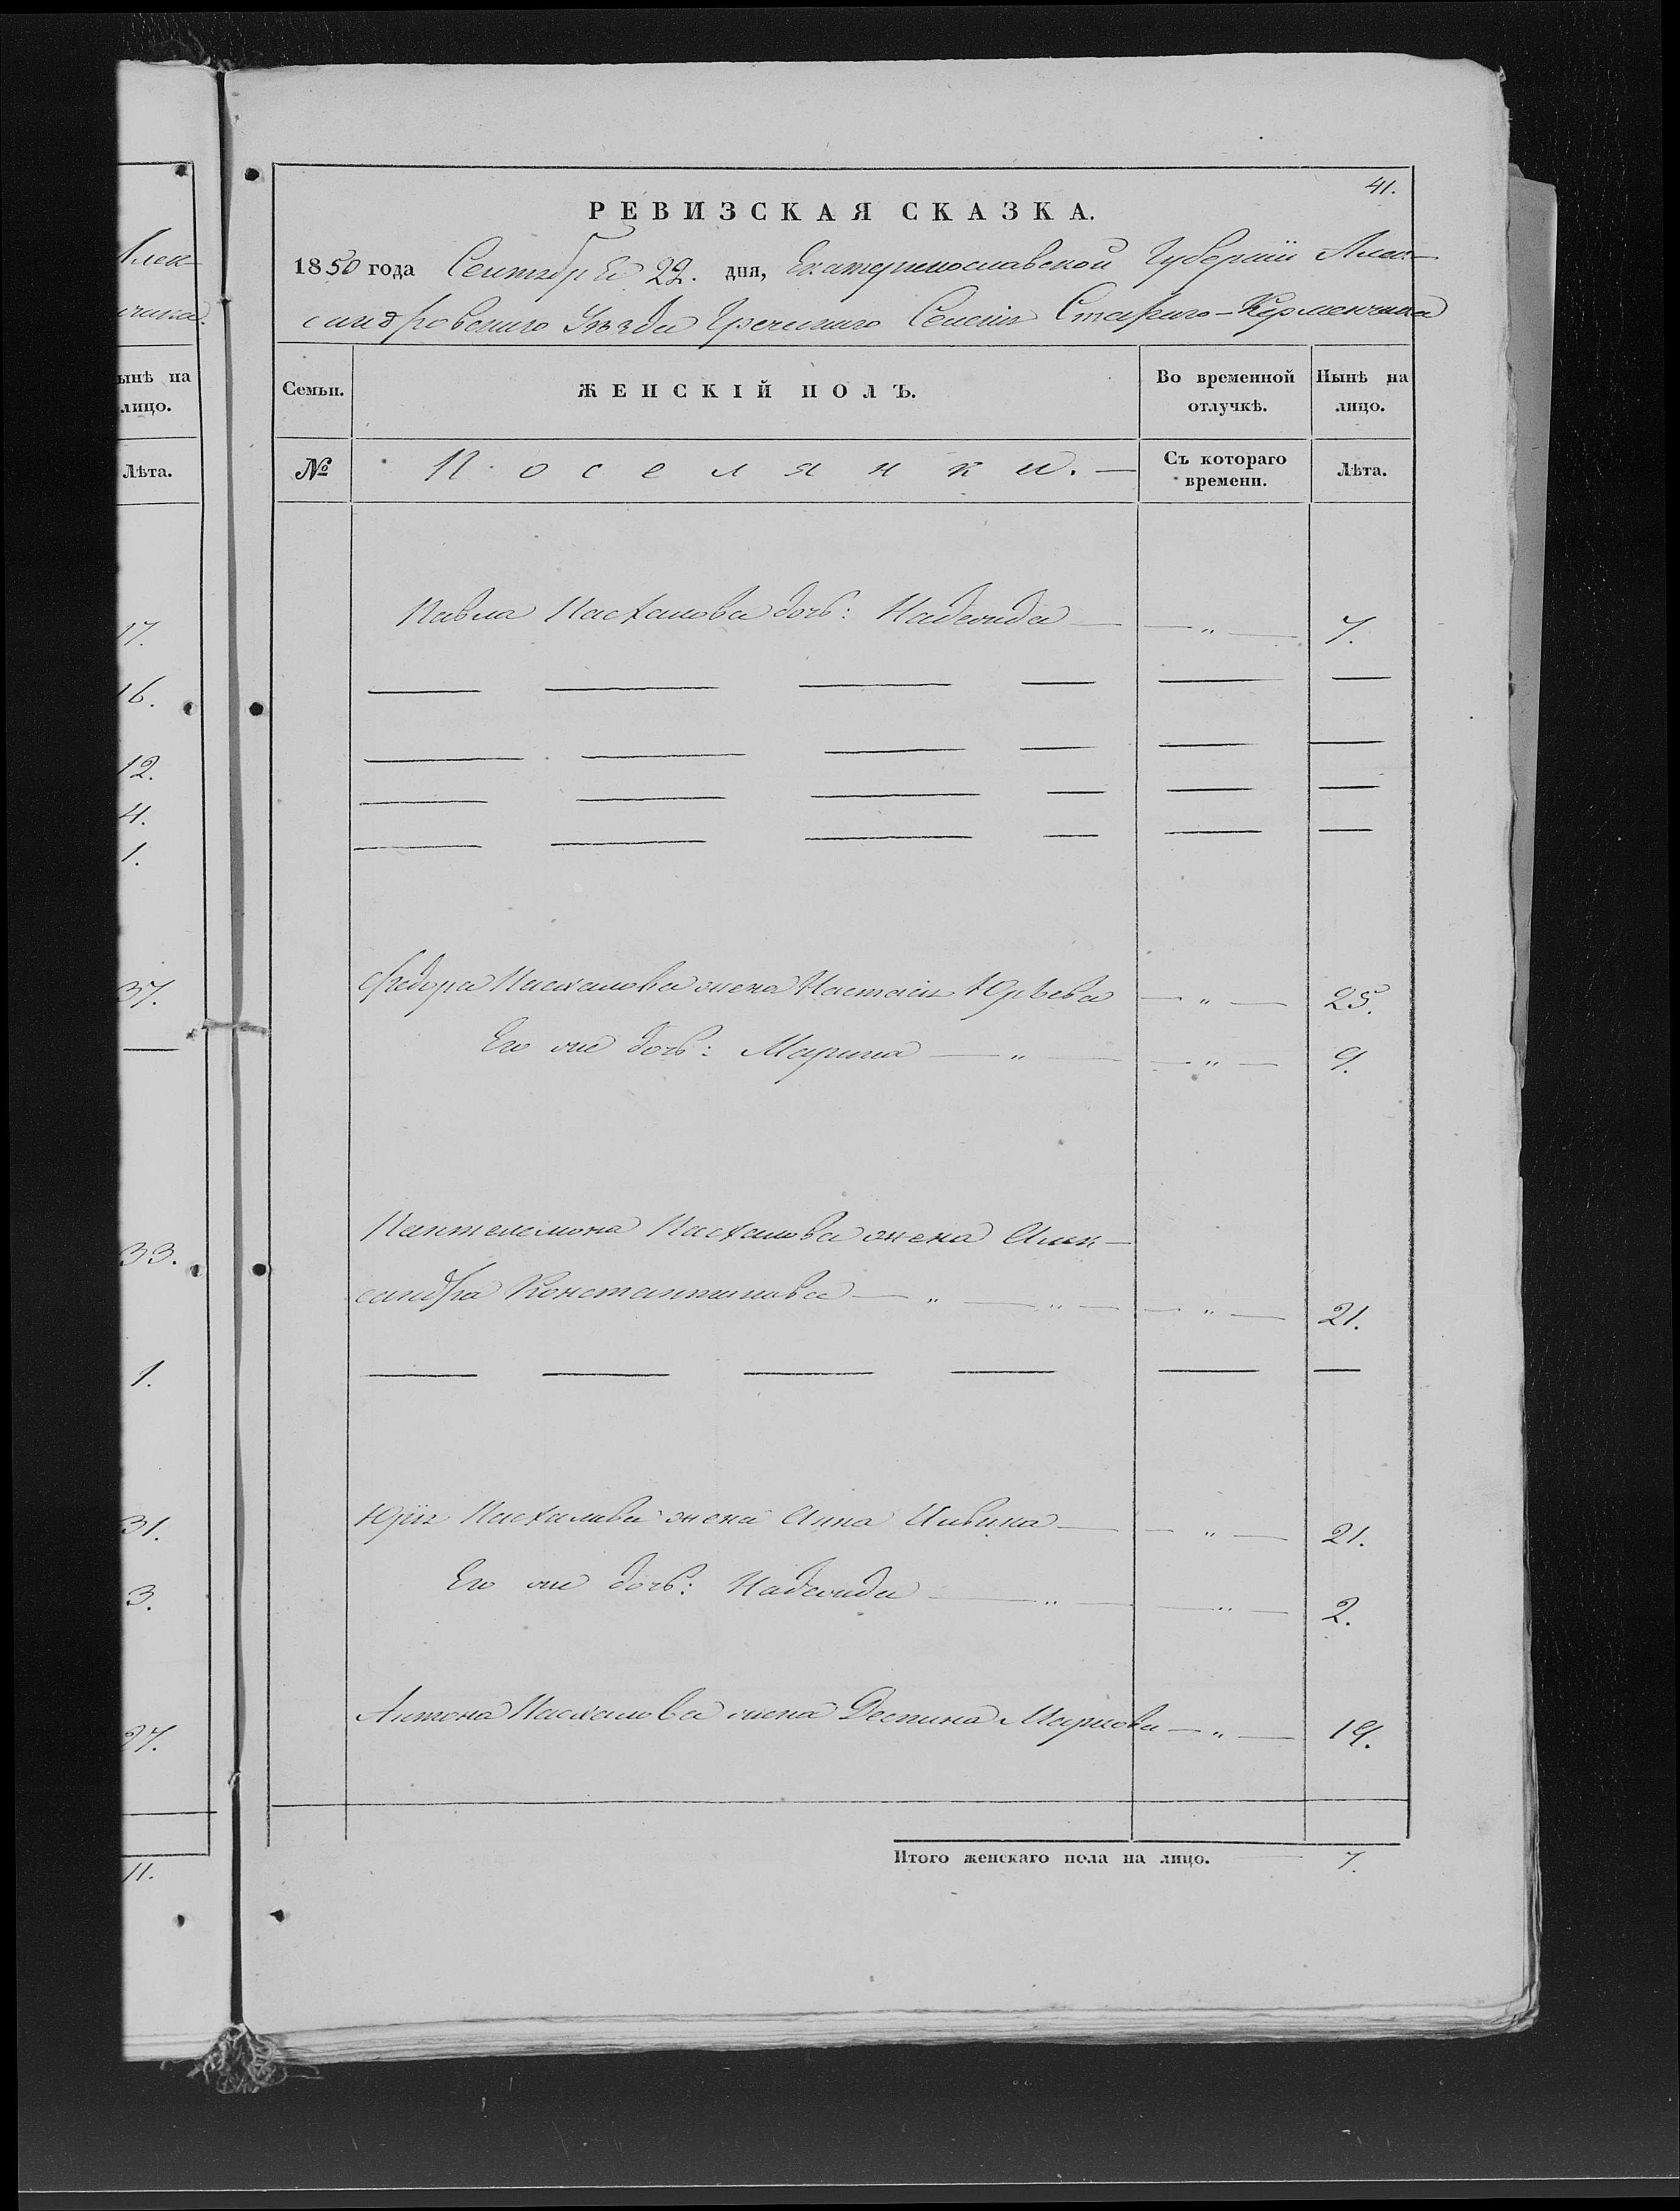 41.
РЕВИЗСКАЯ СКАЗКА.
1850 года Сентября 22. дня, Екатеринославской Губерніи Алек-
сандровскаго Уѣзда Греческаго Селенія Стараго-Керменчика
Семьи. ЖЕНСКІЙ ПОЛЪ. Во временной отлучкѣ. Нынѣ на лицо.
№ Поселянки. — Съ котораго времени. Лѣта.
Павла Пасхалова дочь: Надежда — — " — 7.
Федора Пасхалова жена Настасія Юрьева — " — 25.
Его же дочь: Марина — " — — " — 9.
Пантелемона Пасхалова жена Алек-
сандра Константинова — " — " — — " — 21.
Юрія Пасхалова жена Анна Ильина — — " — 21.
Его же дочь: Надежда — " — — " — 2.
Антона Пасхалова жена Деспина Маркова — " — 19.
Итого женскаго пола на лицо. — 7.
Алек-
нынѣ на
лицо.
Лѣта.
17.
16.
12.
4.
1.
37.
33.
1.
31.
3.
27.
11.